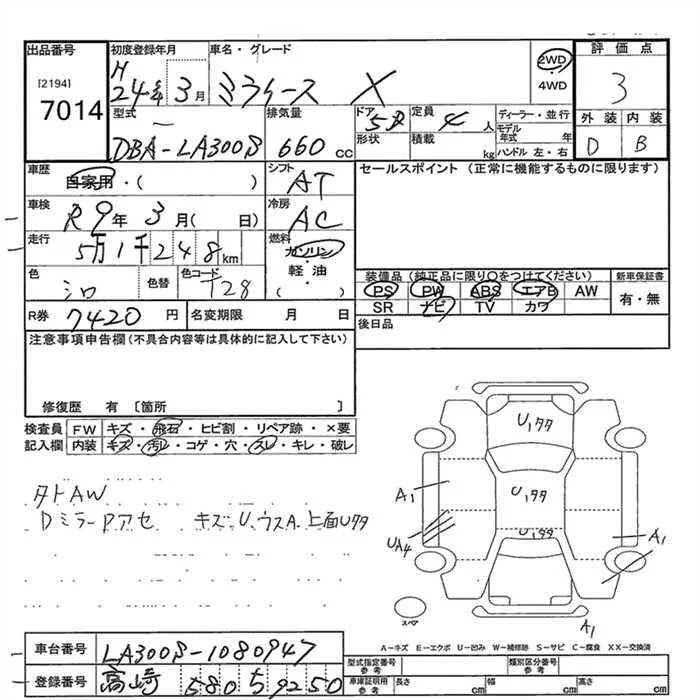 出品番号
[2194]
7014
初度登録年月
H
24年 3月
車名・グレード
ミライース X
2WD
・
4WD
評価点
3
外装 内装
D B
型式
DBA-LA300S
排気量
660 cc
ドア
5D
形状
定員
4 人
積載
kg
ディーラー・並行
モデル年式 年
ハンドル 左・右
車歴
自家用・( )
シフト
AT
セールスポイント (正常に機能するものに限ります)
車検
R9年 3月( 日)
冷房
AC
走行
5万1千248km
燃料
ガソリン
・
軽・油
( )
色
シロ
色替
色コード
T28
装備品 (純正品に限り○をつけてください)
PS PW ABS エアB AW
SR ナビ TV カワ
新車保証書
有・無
R券 7420 円
名変期限 月 日
後日品
注意事項申告欄 (不具合内容等は具体的に記入して下さい)
修復歴 有 〔箇所 〕
検査員 FW キズ・飛石・ヒビ割・リペア跡・×要
記入欄 内装 キズ・汚レ・コゲ・穴・スレ・キレ・破レ
タトAW
Dミラー Pアセ キズU、ウスA、上面Uタタ
U1タタ
A1
U1タタ
UA4
U1タタ
A1
スペア
A1
A-キズ E-エクボ U-凹み W-補修跡 S-サビ C-腐食 XX-交換済
車台番号 LA300S-1080947
登録番号 高崎 580 5 9250
型式指定番号
参考
類別区分番号
参考
車庫証明用
参考
長さ cm
幅 cm
高さ cm